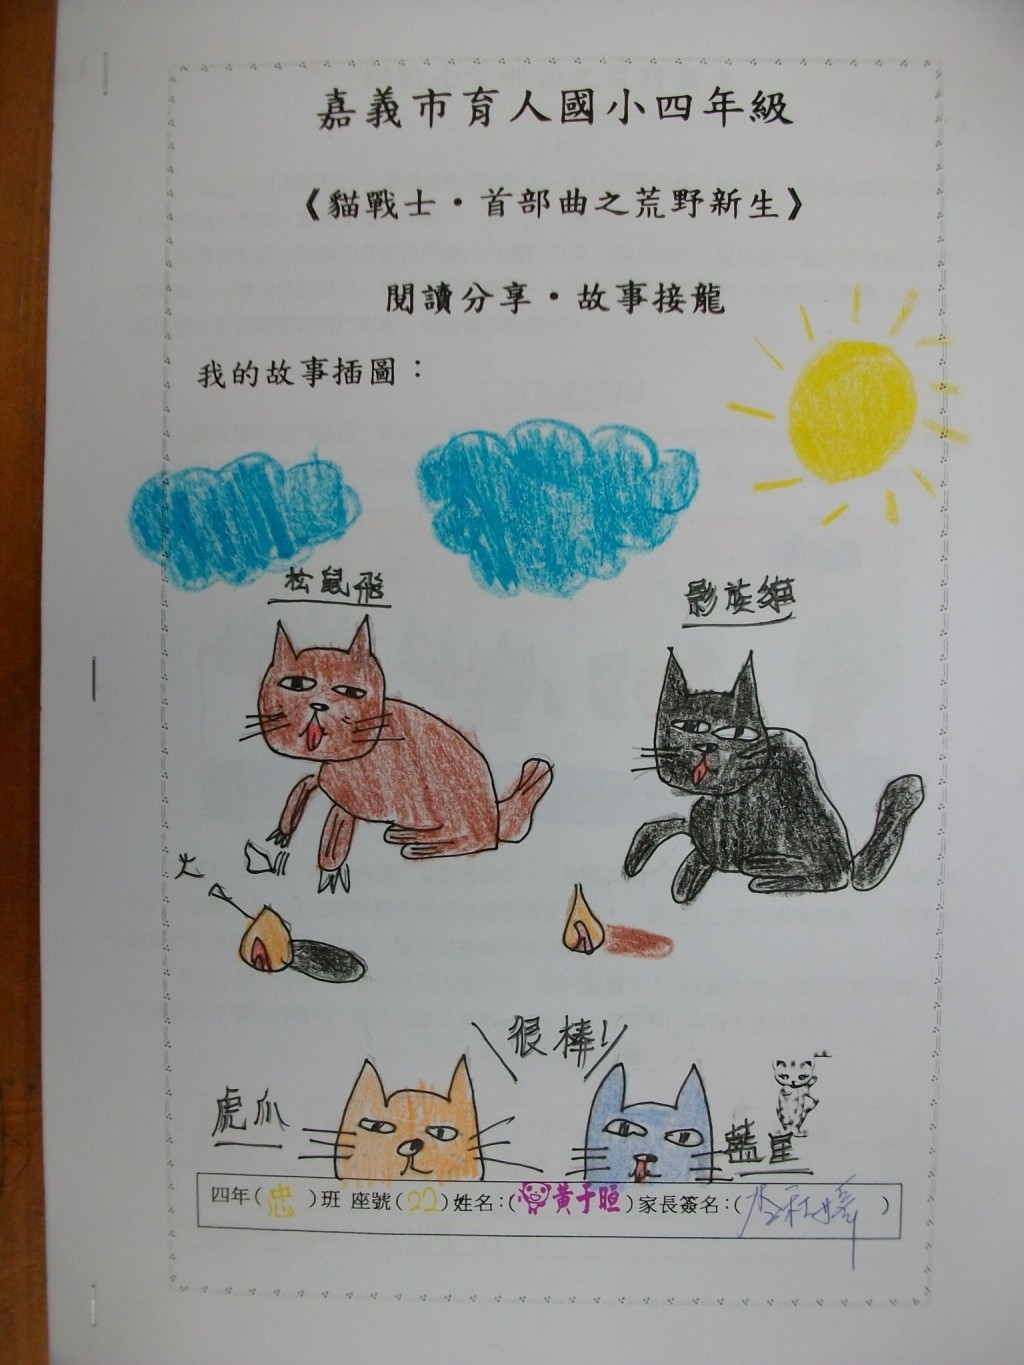 嘉義市育人國小四年級
《貓戰士‧首部曲之荒野新生》
閱讀分享‧故事接龍
我的故事插圖：
松鼠飛
影族貓
火
很棒!
虎爪
藍星
四年(忠)班 座號(22)姓名:(黃于暄)家長簽名:( )